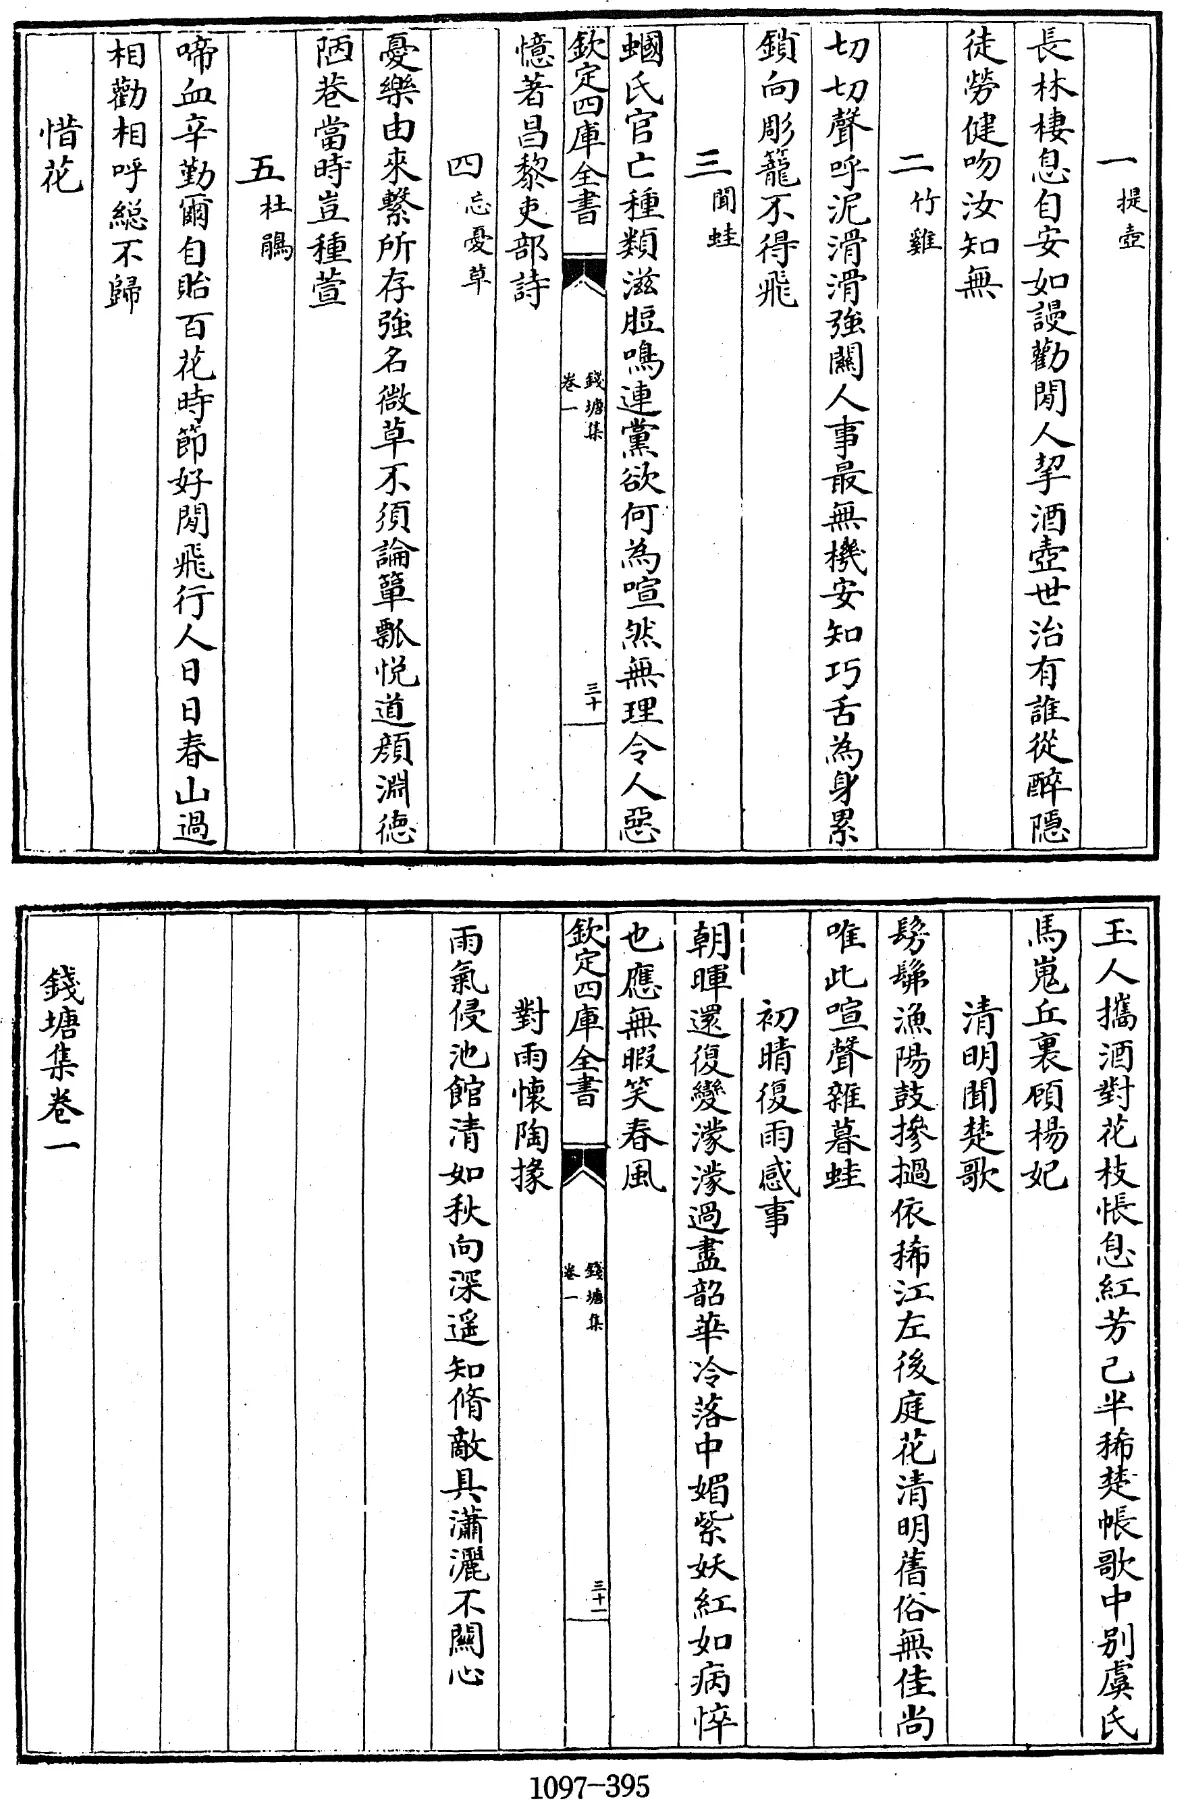 一提壺
長林棲息自安如謾勸閒人挈酒壺世治有誰從醉隱
徒勞健吻汝知無
二竹雞
切切聲呼泥滑滑強關人事最無機安知巧舌為身累
鎖向彫籠不得飛
三聞蛙
蟈氏官亡種類滋脰鳴連黨欲何為喧然無理令人惡
欽定四庫全書
錢塘集
卷一
三十
憶著昌黎吏部詩
四忘憂草
憂樂由來繫所存強名微草不須論簞瓢悅道顔淵徳
陋巷當時豈種萱
五杜鵑
啼血辛勤爾自貽百花時節好閒飛行人日日春山過
相勸相呼縂不歸
惜花
玉人攜酒對花枝悵息紅芳己半稀楚帳歌中別虞氏
馬嵬丘裏頋楊妃
清明聞楚歌
髣髴漁陽鼓摻撾依稀江左後庭花清明舊俗無佳尚
唯此喧聲雜暮蛙
初晴復雨感事
朝暉還復變濛濛過盡韶華冷落中媚紫妖紅如病悴
也應無暇笑春風
欽定四庫全書
錢塘集
卷一
三十一
對雨懷陶掾
雨氣侵池館清如秋向深遥知脩敵具瀟灑不關心
錢塘集卷一
1097-395